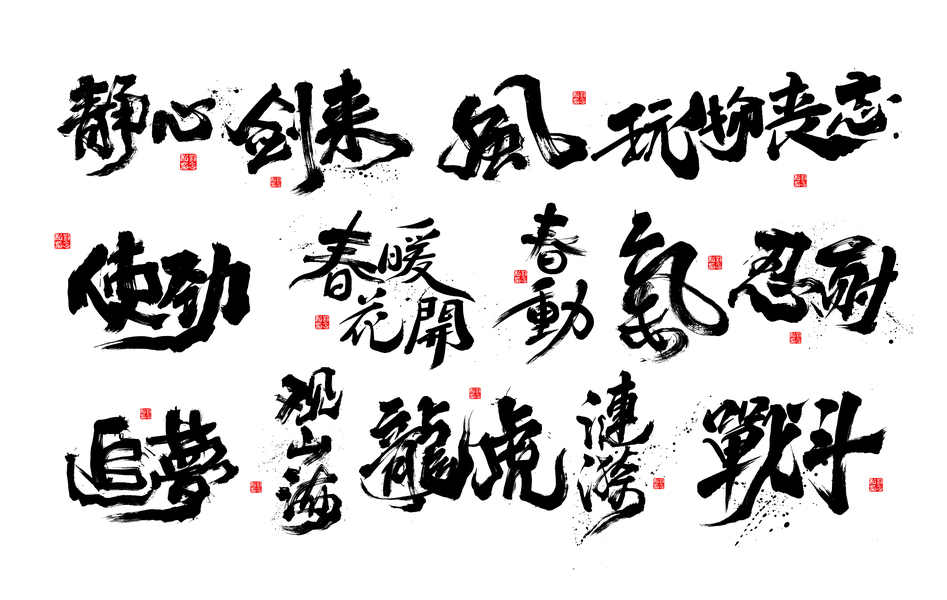 静心
剑来
風
玩物丧志
使劲
春暖
花開
春動
氣
忍耐
追梦
观山海
龍虎
漣漪
戰斗